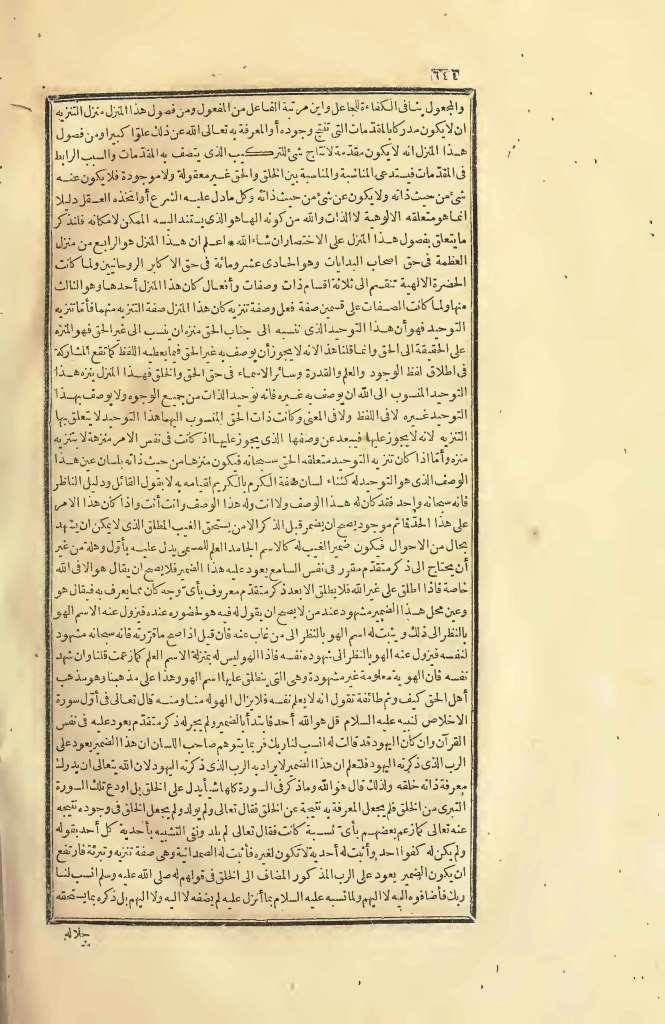 ٦٤٤
والمجعول ينافى الكفاءة للجاعل واين مرتبة الفاعل من المفعول ومن فصول هذا المنزل منزل التنزيه
ان لا يكون مدركا بالمقدمات التى تنتج وجوده أو المعرفة به تعالى الله عن ذلك علوّا كبيرا ومن فصول
هذا المنزل انه لا يكون مقدمة لانتاج شئ للتركيب الذى يتصف به المقدمات والسبب الرابط
فى المقدمات فيستدعى المناسبة والمناسبة بين الخلق والحق غير معقولة ولا موجودة فلا يكون عنه
شئ من حيث ذاته ولا يكون عن شئ من حيث ذاته وكل ما دل عليه الشرع أو اتخذه العقل دليلا
انما هو متعلقه الالوهية لا الذات والله من كونه الها هو الذى يستند اليه الممكن لامكانه فلنذكر
ما يتعلق بفصول هذا المنزل على الاختصار ان شاء الله * اعلم ان هذا المنزل هو الرابع من منزل
العظمة فى حق اصحاب البدايات وهو الحادى عشر ومائة فى حق الاكابر الروحانيين ولما كانت
الحضرة الالهية تنقسم الى ثلاثة اقسام ذات وصفات وأفعال كان هذا المنزل أحدها وهو الثالث
منها ولما كانت الصفات على قسمين صفة فعل وصفة تنزيه كان هذا المنزل صفة التنزيه منهما فأما تنزيه
التوحيد فهو أن هذا التوحيد الذى نفسبه الى جناب الحق منزه ان ينسب الى غير الحق فهو المنزه
على الحقيقة الى الحق وانما قلنا هذا لانه لا يجوز أن يوصف به غير الحق فيما يعطيه اللفظ كما تقع المشاركة
فى اطلاق لفظ الوجود والعلم والقدرة وسائر الاسماء فى حق الحق والخلق فهذا المنزل ينزه هذا
التوحيد المنسوب الى الله ان يوصف به غيره فانه توحيد الذات من جميع الوجوه ولا يوصف بهذا
التوحيد غيره لا فى اللفظ ولا فى المعنى وكانت ذات الحق المنسوب اليها هذا التوحيد لا يتعلق بها
التنزيه لانه لا يجوز عليها فيبعد عن وصفها الذى يجوز عليها اذ كانت فى نفس الامر منزهة لا بتنزيه
منزه وأما اذا كان تنزيه التوحيد متعلقه الحق سبحانه فيكون منزها من حيث ذاته بلسان عين هذا
الوصف الذى هو التوحيد له كثناء لسان صفة الكرم بالكريم لقيامه به لا بقول القائل ودليل الناظر
فانه سبحانه واحد فقد كان له هذا الوصف ولا انت وله هذا الوصف وانت أنت واذا كان هذا الامر
على هذا الحدّ فما ثم موجود يصح ان يضمر قبل الذكر الا من يستحق الغيب المطلق الذى لا يمكن ان يشهد
بحال من الاحوال فيكون ضمير الغيب له كالاسم الجامد العلم للمسمى يدل عليه بأوّل وهلة من غير
أن يحتاج الى ذكر متقدّم مقرر فى نفس السامع يعود عليه هذا الضمير فلا يصح ان يقال هو الا فى الله
خاصة فاذا اطلق على غير الله فلا يطلق الا بعد ذكر متقدّم معروف بأىّ وجه كان مما يعرف به فيقال هو
وعين محل هذا الضمير مشهود عند من لا يصح ان يقول له فيه هو لحضوره عنده فيزول عنه الاسم الهو
بالنظر الى ذلك ويثبت له اسم الهو بالنظر الى من غاب عنه فان قيل اذا صح ما قررته فانه سبحانه مشهود
لنفسه فيزول عنه الهو بالنظر الى شهوده نفسه فاذا الهو ليس له بمنزلة الاسم العلم كما زعمت قلنا وان شهد
نفسه فان الهو به معلومة غير مشهودة وهى التى ينطلق عليها اسم الهو وهذا على مذهبنا وهو مذهب
أهل الحق كيف وثم طائفة تقول انه لا يعلم نفسه فلا يزال الهو له منا ومنه قال تعالى فى أوّل سورة
الاخلاص لنبيه عليه السلام قل هو الله أحد فابتدأ بالضمير ولم يجر له ذكر متقدّم يعود عليه فى نفس
القرآن وان كان اليهود قد قالت له انسب لنا ربك فربما يتوهم صاحب اللسان ان هذا الضمير يعود على
الرب الذى ذكرته اليهود فلتعلم ان هذا الضمير لا يراد به الرب الذى ذكرته اليهود لان الله يتعالى ان يدرك
معرفة ذاته خلقه ولذلك قال هو الله وما ذكر فى السورة كلها شيأ يدل على الخلق بل اودع تلك السورة
التبرى من الخلق فلم يجعل المعرفة به نتيجة عن الخلق فقال تعالى ولم يولد ولم يجعل الخلق فى وجوده نتيجة
عنه تعالى كما زعم بعضهم بأىّ نسبة كانت فقال تعالى لم يلد ونفى التشبيه بأحدية كل أحد بقوله
ولم يكن له كفوا احد وأثبت له أحدية لا تكون لغيره فأثبت له الصمدانية وهى صفة تنزيه وتبرئة فارتفع
ان يكون الضمير يعود على الرب المذكور المضاف الى الخلق فى قولهم له صلى الله عليه وسلم انسب لنا
ربك فأضافوه اليه لا اليهم ولما نسبه عليه السلام بما أنزل عليه لم يضفه لا اليه ولا اليهم بل ذكره بما يستحقه
جلاله